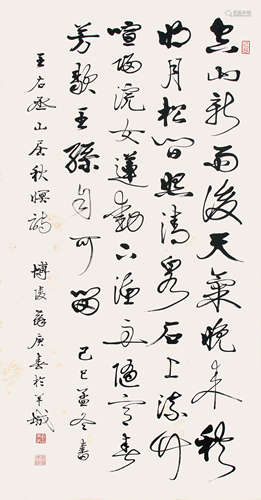 空山新雨後天氣晚來秋
明月松間照清泉石上流竹
喧歸浣女蓮動下漁舟隨意春
芳歇王孫自可留 己巳孟冬書
王右丞山居秋暝詩 博陵蘇庚春於羊城